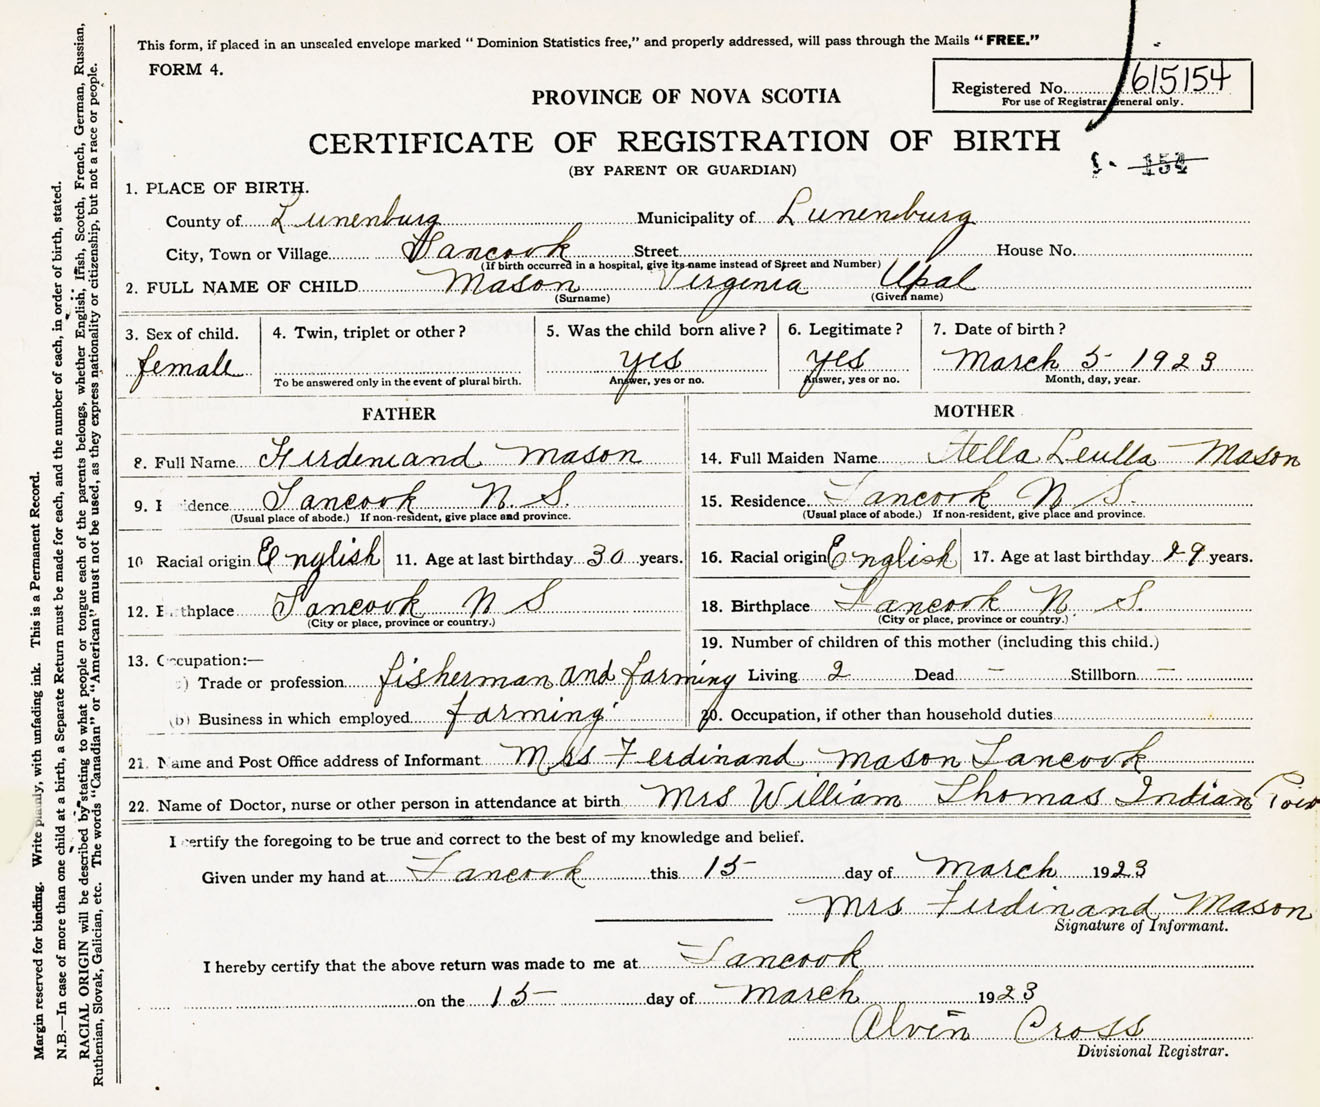 This form, if placed in an unsealed envelope marked “ Dominion Statistics free,” and properly addressed, will pass through the Mails “ FREE.”
FORM 4.
Registered No. 615154
For use of Registrar General only.
PROVINCE OF NOVA SCOTIA
CERTIFICATE OF REGISTRATION OF BIRTH
(BY PARENT OR GUARDIAN)
151
1. PLACE OF BIRTH.
County of Lunenburg Municipality of Lunenburg
City, Town or Village Tancook Street House No.
(If birth occurred in a hospital, give its name instead of Street and Number)
2. FULL NAME OF CHILD Mason Virginia Upal
(Surname) (Given name)
3. Sex of child. 4. Twin, triplet or other? 5. Was the child born alive? 6. Legitimate? 7. Date of birth?
female yes yes March 5 1923
To be answered only in the event of plural birth. Answer, yes or no. Answer, yes or no. Month, day, year.
FATHER MOTHER
8. Full Name Firdeniand Mason 14. Full Maiden Name Stella Leulla Mason
9. R dence Tancook N. S. 15. Residence Tancook N S.
(Usual place of abode.) If non-resident, give place and province. (Usual place of abode.) If non-resident, give place and province.
10 Racial origin English 11. Age at last birthday 30 years. 16. Racial origin English 17. Age at last birthday 29 years.
12. B thplace Tancook N S 18. Birthplace Tancook N. S.
(City or place, province or country.) (City or place, province or country.)
19. Number of children of this mother (including this child.)
13. Occupation:—
) Trade or profession fisherman and farming Living 2 Dead – Stillborn –
(b) Business in which employed farming 20. Occupation, if other than household duties
21. Name and Post Office address of Informant Mrs Ferdinand Mason Tancook
22. Name of Doctor, nurse or other person in attendance at birth Mrs William Thomas Indian
I certify the foregoing to be true and correct to the best of my knowledge and belief.
Given under my hand at Tancook this 15 day of March 1923
Mrs Ferdinand Mason
Signature of Informant.
I hereby certify that the above return was made to me at Tancook
on the 15 day of March 1923
Alvin Cross
Divisional Registrar.
Margin reserved for binding. Write plainly, with unfading ink. This is a Permanent Record.
N.B.—In case of more than one child at a birth, a Separate Return must be made for each, and the number of each, in order of birth, stated.
RACIAL ORIGIN will be described by stating to what people or tongue each of the parents belongs, whether English, Irish, Scotch, French, German, Russian,
Ruthenian, Slovak, Galician, etc. The words “Canadian” or “American” must not be used, as they express nationality or citizenship, but not a race or people.